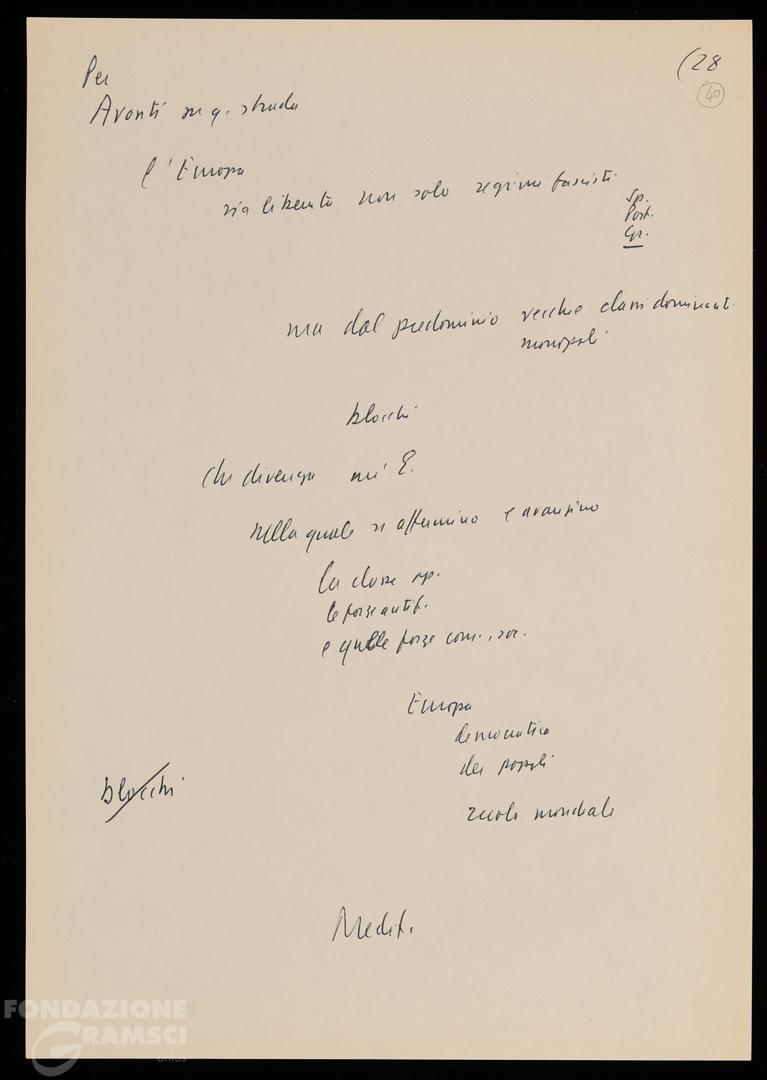 (28
40
Per
Avanti su q. strada
l'Europa
sia liberata non solo regimi fascisti
Sp.
Port.
Gr.
ma dal predominio vecchie classi dominanti
monopoli
blocchi
che divenga un' E.
nella quale si affermino e avanzino
la classe op.
le forze antif.
e quelle forze com., soc.
Europa
democratica
dei popoli
blocchi
scala mondiale
Medit.
FONDAZIONE
GRAMSCI
onlus